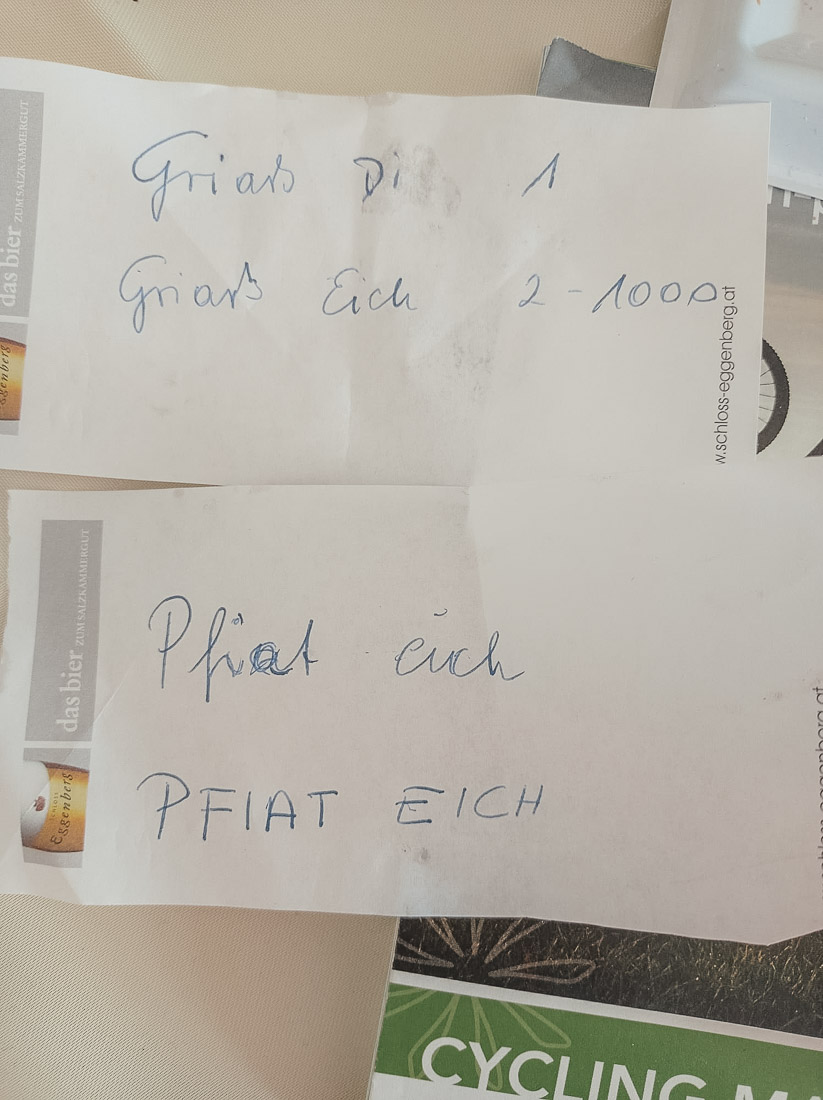 das bier ZUM SALZKAMMERGUT
Eggenberg
Griaß Di 1
Griaß Eich 2 - 1000
w.schloss-eggenberg.at
das bier ZUM SALZKAMMERGUT
SCHLOSS
Eggenberg
Pfiat eich
PFIAT EICH
CYCLING MA